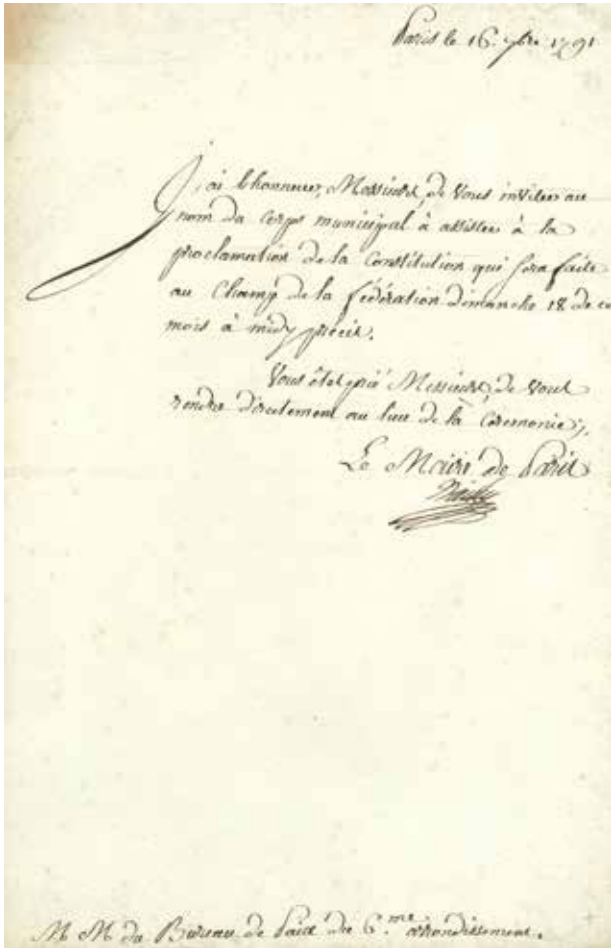 Paris le 16. 7bre 1791
J'ai l'honneur, Messieurs, de vous inviter au
nom du corps municipal à assister à la
proclamation de la Constitution qui sera faite
au Champ de la fédération dimanche 18 de ce
mois à midy précis.
Vous êtes prié Messieurs, de vous
rendre directement au lieu de la Ceremonie ;.
Le Maire de Paris
Bailly
M M du Bureau de Paix du 6.me arrondissement.